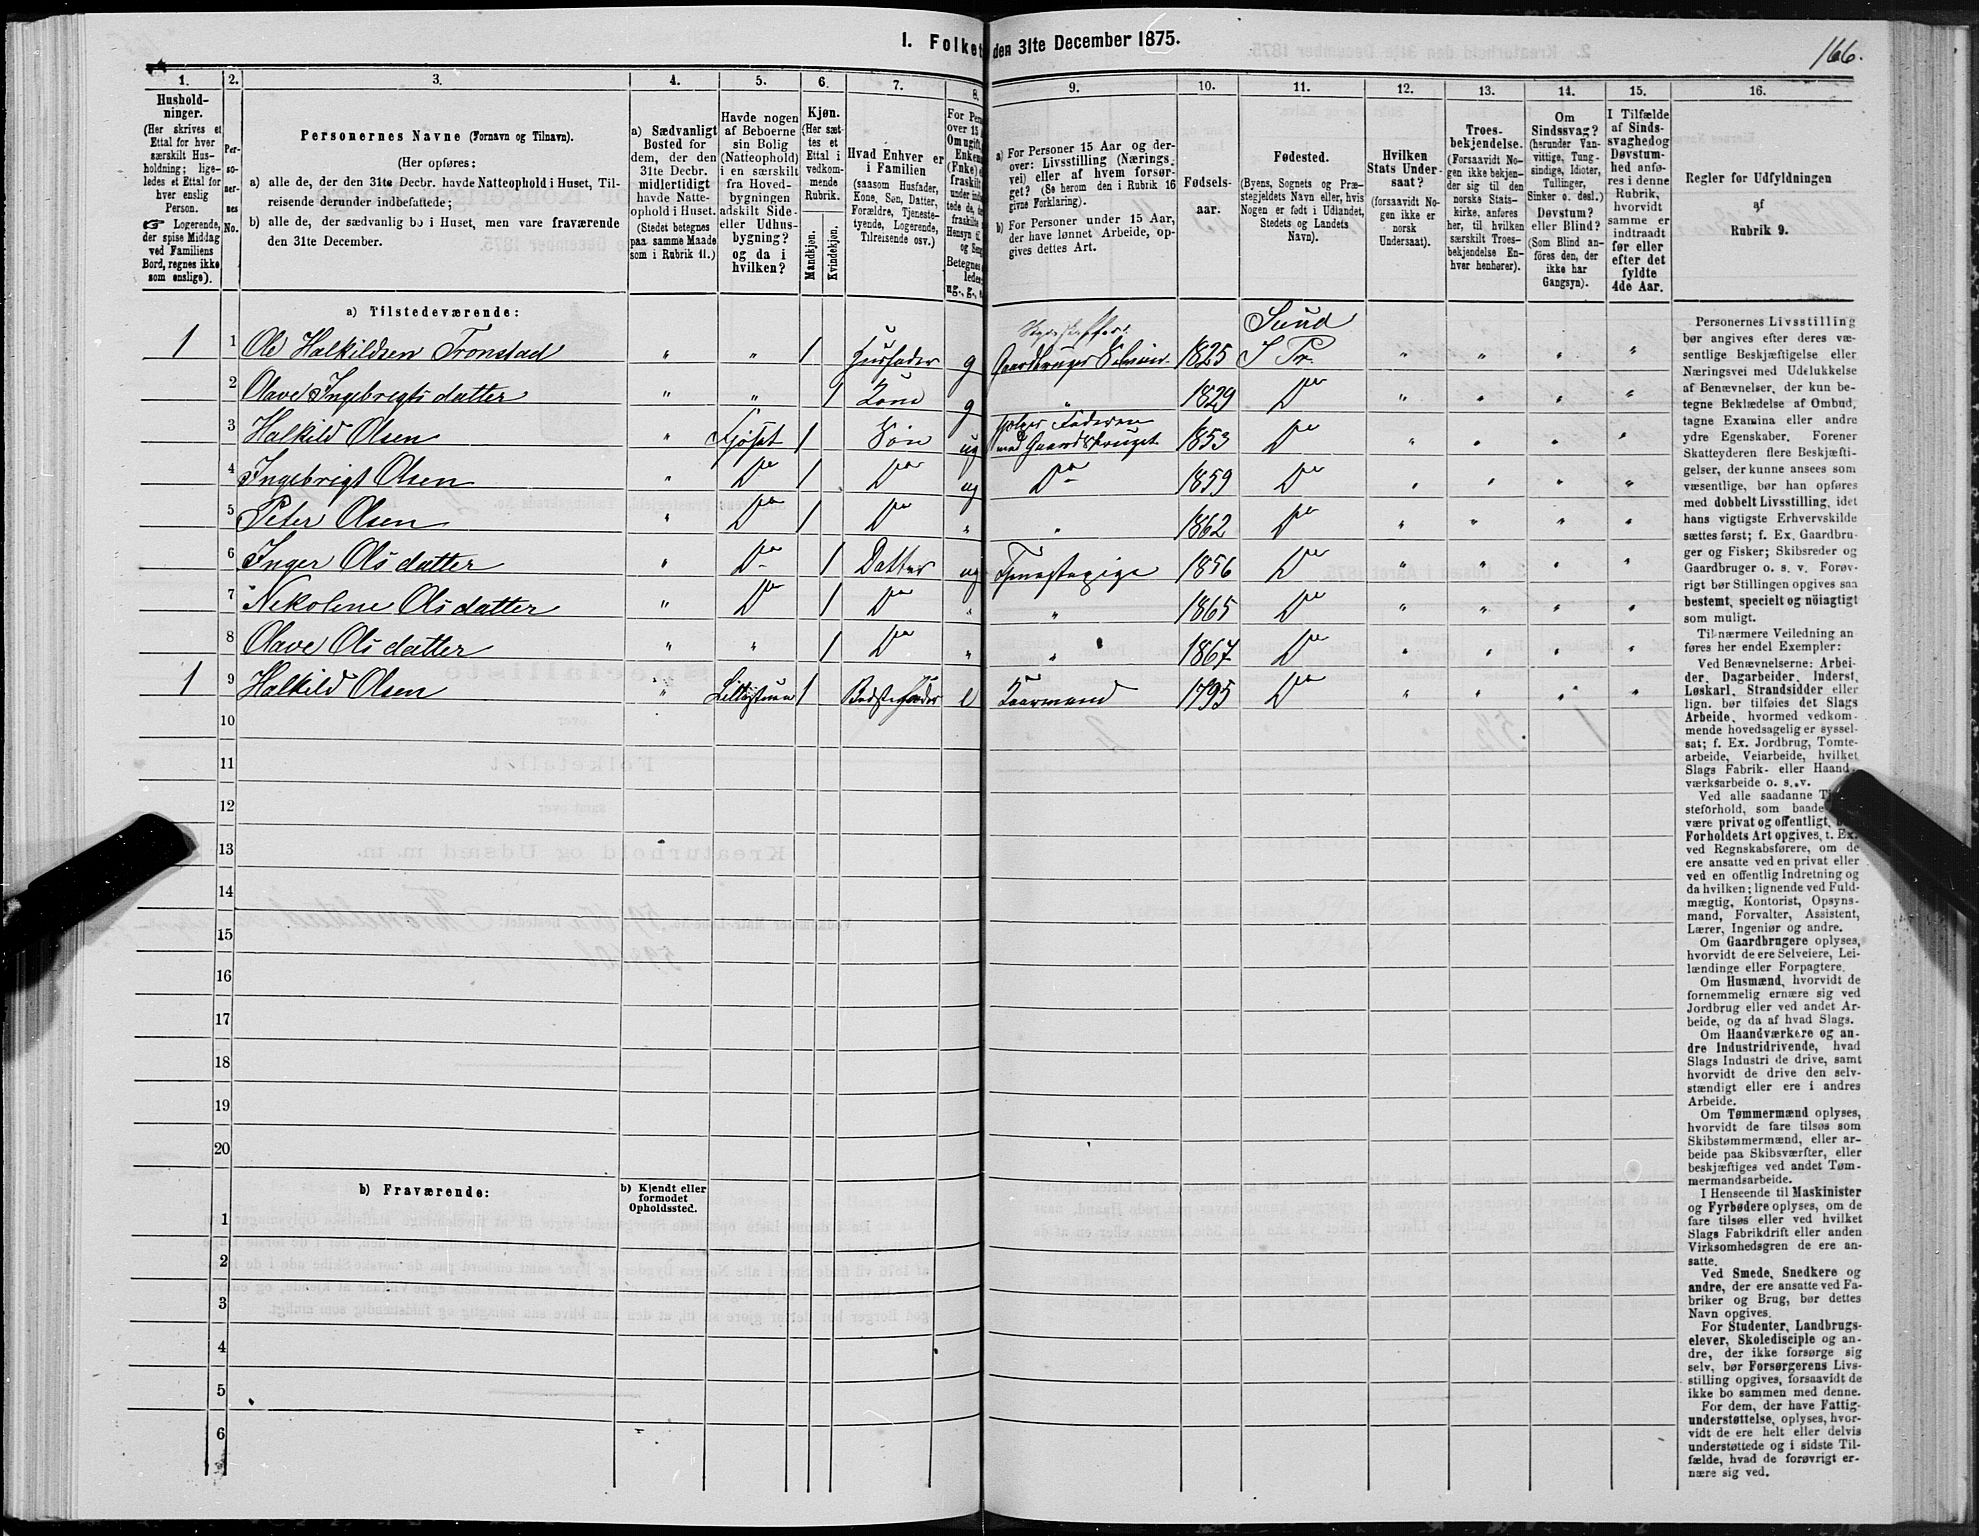 I. Folket den 31te December 1875.
166.
1. 2. 3. 4. 5. 6. 7. 8. 9. 10. 11. 12. 13. 14. 15. 16.
Hushold-
ninger.
(Her skrives et
Ettal for hver
særskilt Hus-
holdning; lige-
ledes et Ettal for
hver enslig
Person.
☞ Logerende,
der spise Middag
ved Familiens
Bord, regnes ikke
som enslige).
Per-
so-
ner-
nes
No.
Personernes Navne (Fornavn og Tilnavn).
(Her opføres:
a) alle de, der den 31te Decbr. havde Natteophold i Huset, Til-
reisende derunder indbefattede;
b) alle de, der sædvanlig bo i Huset, men vare fraværende
den 31te December.
a) Sædvanligt
Bosted for
dem, der den
31te Decbr.
midlertidigt
havde Natte-
ophold i Huset.
(Stedet betegnes
paa samme Maade
som i Rubrik 11.)
Havde nogen
af Beboerne
sin Bolig
(Natteophold)
i en særskilt
fra Hoved-
bygningen
adskilt Side-
eller Udhus-
bygning?
og da i
hvilken?
Kjøn.
(Her sæt-
tes et
Ettal i
vedkom-
mende
Rubrik.
Mandkjøn.
Kvindekjøn.
Hvad Enhver er
i Familien
(saasom Husfader,
Kone, Søn, Datter,
Forældre, Tjeneste-
tyende, Logerende,
Tilreisende osv.)
For Pers
over 15 A
Om ugift,
Enkem
(Enke) e
fraskilt
under indb
tede de, de
fraskilte
Hensyn ti
og Sen
Betegnes
ledes
ug., g., e
a) For Personer 15 Aar og der-
over: Livsstilling (Nærings-
vei) eller af hvem forsør-
get? (Se herom den i Rubrik 16
givne Forklaring).
b) For Personer under 15 Aar,
der have lønnet Arbeide, op-
gives dettes Art.
Fødsels-
aar.
Fødested.
(Byens, Sognets og Præ-
stegjeldets Navn eller, hvis
Nogen er født i Udlandet,
Stedets og Landets
Navn).
Hvilken
Stats Under-
saat?
(forsaavidt No-
gen ikke er
norsk
Undersaat).
Troes-
bekjendelse.
(Forsaavidt No-
gen ikke bekjen-
der sig til den
norske Stats-
kirke, anføres
her, til hvilken
særskilt Troes-
bekjendelse En-
hver henhører).
Om
Sindssvag?
(herunder Van-
vittige, Tung-
sindige, Idioter,
Tullinger,
Sinker o. desl.)
Døvstum?
eller Blind?
(Som Blind an-
føres den, der
ikke har
Gangsyn).
I Tilfælde
af Sinds-
svaghed og
Døvstum-
hed anfø-
res i denne
Rubrik,
hvorvidt
samme er
indtraadt
før eller
efter det
fyldte
4de Aar.
Regler for Udfyldningen
af
Rubrik 9.
a) Tilstedeværende:
1 1 Ole Halkildsen Tronstad " " 1 Husfader g Gaardbruger Selveier 1825 Sund S Pr. " " " "
2 Olave Ingebrigts datter " " 1 Kone g " 1829 Do " " " "
3 Halkild Olsen " Fjøset 1 Søn ug hjelper Faderen med Gaardsbruget 1853 Do " " " "
4 Ingebrigt Olsen " Do 1 Do ug Do 1859 Do " " " "
5 Peter Olsen " Do 1 Do " " 1862 Do " " " "
6 Inger Ols datter " Do 1 Datter ug Tjenestepige 1856 Do " " " "
7 Nekolene Ols datter " Do 1 Do " " 1865 Do " " " "
8 Olave Ols datter " " 1 Do " " 1867 Do " " " "
1 9 Halkild Olsen " 1 Bedstefader e Kaarmand 1795 Do " " " "
10
11
12
13
14
15
16
17
18
19
20
b) Fraværende:
b) Kjendt eller
formodet
Opholdssted.
1
2
3
4
5
6
Personernes Livsstilling
bør angives efter deres væ-
sentlige Beskjæftigelse eller
Næringsvei med Udelukkelse
af Benævnelser, der kun be-
tegne Beklædelse af Ombud,
tagne Examina eller andre
ydre Egenskaber. Forener
Skatteyderen flere Beskjæfti-
gelser, der kunne ansees som
væsentlige, bør han opføres
med dobbelt Livsstilling, idet
hans vigtigste Erhvervskilde
sættes først; f. Ex. Gaardbru-
ger og Fisker; Skibsreder og
Gaardbruger o. s. v. Forøv-
rigt bør Stillingen opgives saa
bestemt, specielt og nöiagtigt
som muligt.
Til nærmere Veiledning an-
føres her endel Exempler:
Ved Benævnelserne: Arbei-
der, Dagarbeider, Inderst,
Løskarl, Strandsidder eller
lign. bør tilføies det Slags
Arbeide, hvormed vedkom-
mende hovedsagelig er syssel-
sat; f. Ex. Jordbrug, Tomte-
arbeide, Veiarbeide, hvilket
Slags Fabrik- eller Haand-
værksarbeide o. s. v.
Ved alle saadanne
steforhold, som baade
være privat og offentlig,
Forholdets Art opgives, t. Ex.
ved Regnskabsførere, om de
ere ansatte ved en privat eller
ved en offentlig Indretning og
da hvilken; lignende ved Fuld-
mægtig, Kontorist, Opsyns-
mand, Forvalter, Assistent,
Lærer, Ingeniør og andre.
Om Gaardbrugere oplyses,
hvorvidt de ere Selveiere, Lei-
lændinge eller Forpagtere.
Om Husmænd, hvorvidt de
fornemmelig ernære sig ved
Jordbrug eller ved andet Ar-
beide, og da af hvad Slags.
Om Haandværkere og an-
dre Industridrivende, hvad
Slags Industri de drive, samt
hvorvidt de drive den selv-
stændigt eller ere i andres
Arbeide.
Om Tømmermænd oplyses,
hvorvidt de fare tilsøs som
Skibstømmermænd, eller ar-
beide paa Skibsværfter, eller
beskjæftiges ved andet Tøm-
mermandsarbeide.
I Henseende til Maskinister
og Fyrbødere oplyses, om de
fare tilsøs eller ved hvilket
Slags Fabrikdrift eller anden
Virksomhedsgren de ere an-
satte.
Ved Smede, Snedkere og
andre, der ere ansatte ved Fa-
briker og Brug, bør dettes
Navn opgives.
For Studenter, Landbrugs-
elever, Skoledisciple og an-
dre, der ikke forsørge sig
selv, bør Forsørgerens Livs-
stilling opgives, forsaavidt de
ikke bo sammen med denne.
For dem, der have Fattig-
understøttelse, oplyses, hvor-
vidt de ere helt eller delvis
understøttede og i sidste Til-
fælde, hvad de forøvrigt er-
nære sig ved.